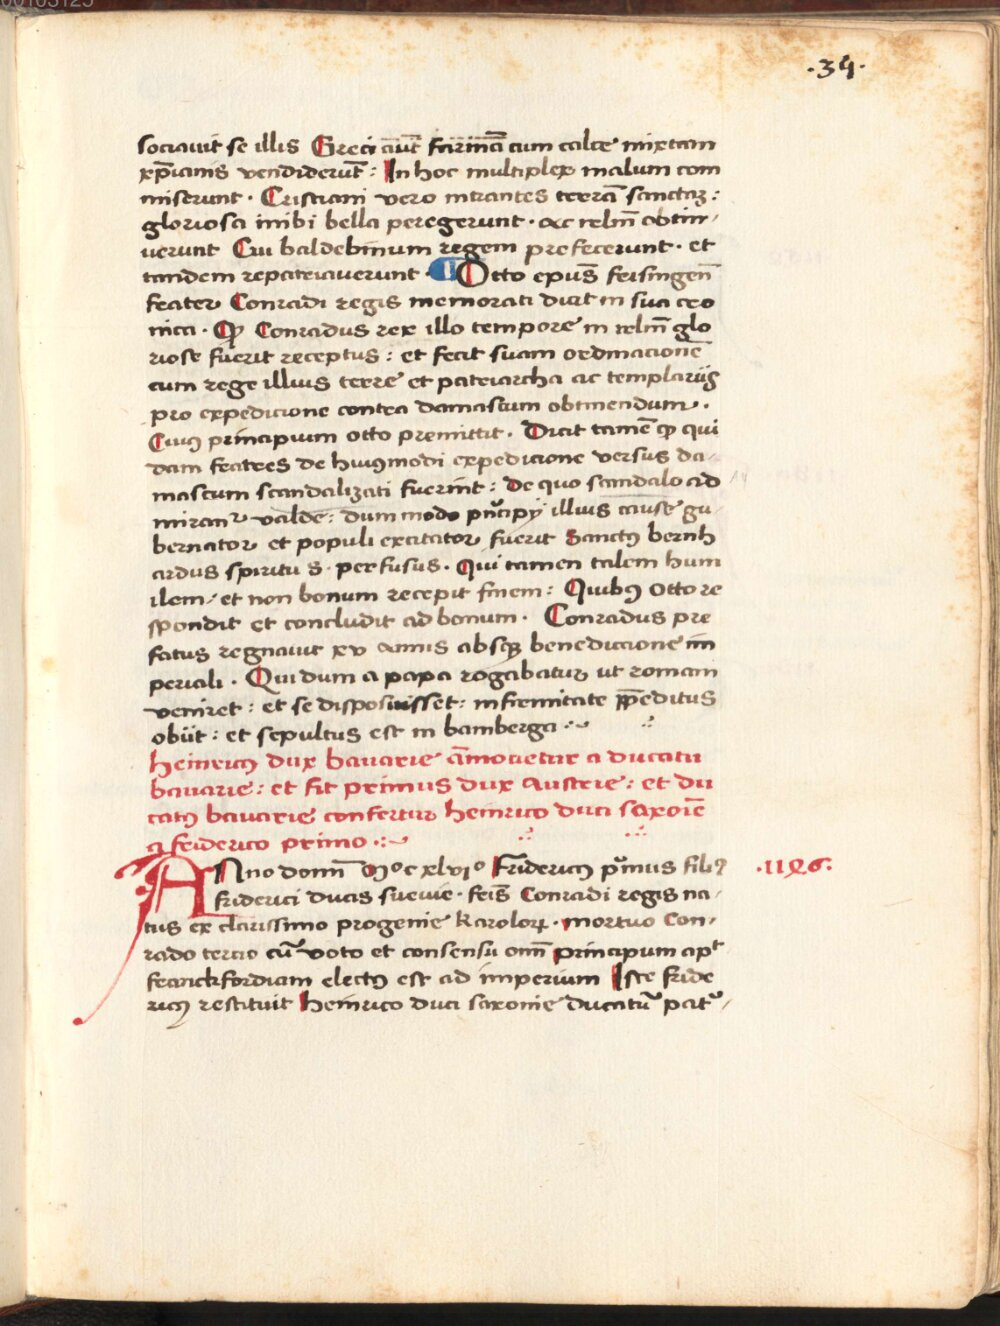 00103125
·34·
sociauit se illis Greci aūt farinā cum calce mixtam
xp̄ianis vendiderūt : In hoc multiplex malum com
miserunt · Cristiani vero intrantes terrā sanctaꝫ :
gloriosa inibi bella peregerunt · ac relm̄ obtin-
uerunt Cui baldebinum regem prefecerunt · et
tandem repatriauerunt · Otto ep̄us frisingen̄
frater Conradi regis memorati dicit in sua cro
nica · Ꝙ Conradus rex illo tempore in relm̄ glo
riose fuerit receptus : et fecit suam ordinacionē
cum rege illius terre et patriarcha ac templariis
pro expedicione contra damascum obtinendum ·
Cuiꝰ principium otto premittit · Dicit tamē ꝙ qui
dam fratres de huiꝰmodi expedicione versus da-
mascum scandalizati fuerint : De quo scandalo ad
mirant᷑ valde : dummodo pn̄cipij illius cause gu-
bernator et populi excitator fuerit Sanctꝰ bernh
ardus spiritu s· perfusus · Qui tamen talem hum
ilem et non bonum recepit finem : Quibꝰ Otto re
spondit et concludit ad bonum · Conradus pre
fatus regnauit xv annis absqꝫ benediccione im
periali · Qui dum a papa rogabatur ut romam
veniret : et se disposuisset : infirmitate p̄peditus
obiit : et sepultus est in bamberga :~
heinricꝰ dux bauarie āmouetur a ducatu
bauarie : et fit primus dux Austrie : et du
catꝰ bauarie confertur heinrico duci saxoīe
a friderico primo :~
Anno domī Mᵒ c xlviᵒ Fridericꝰ pͥmus filiꝰ
friderici ducis sueuie · fr̄is Conradi regis na-
tus ex clarissimo progenie karoloꝝ · mortuo Con-
rado tercio cū voto et consensu om̄ principum apᵗ
franckfordiam electꝰ est ad imperium Iste fride
ricꝰ restituit heinrico duci saxonie Ducatū patᵘ-
·1146·